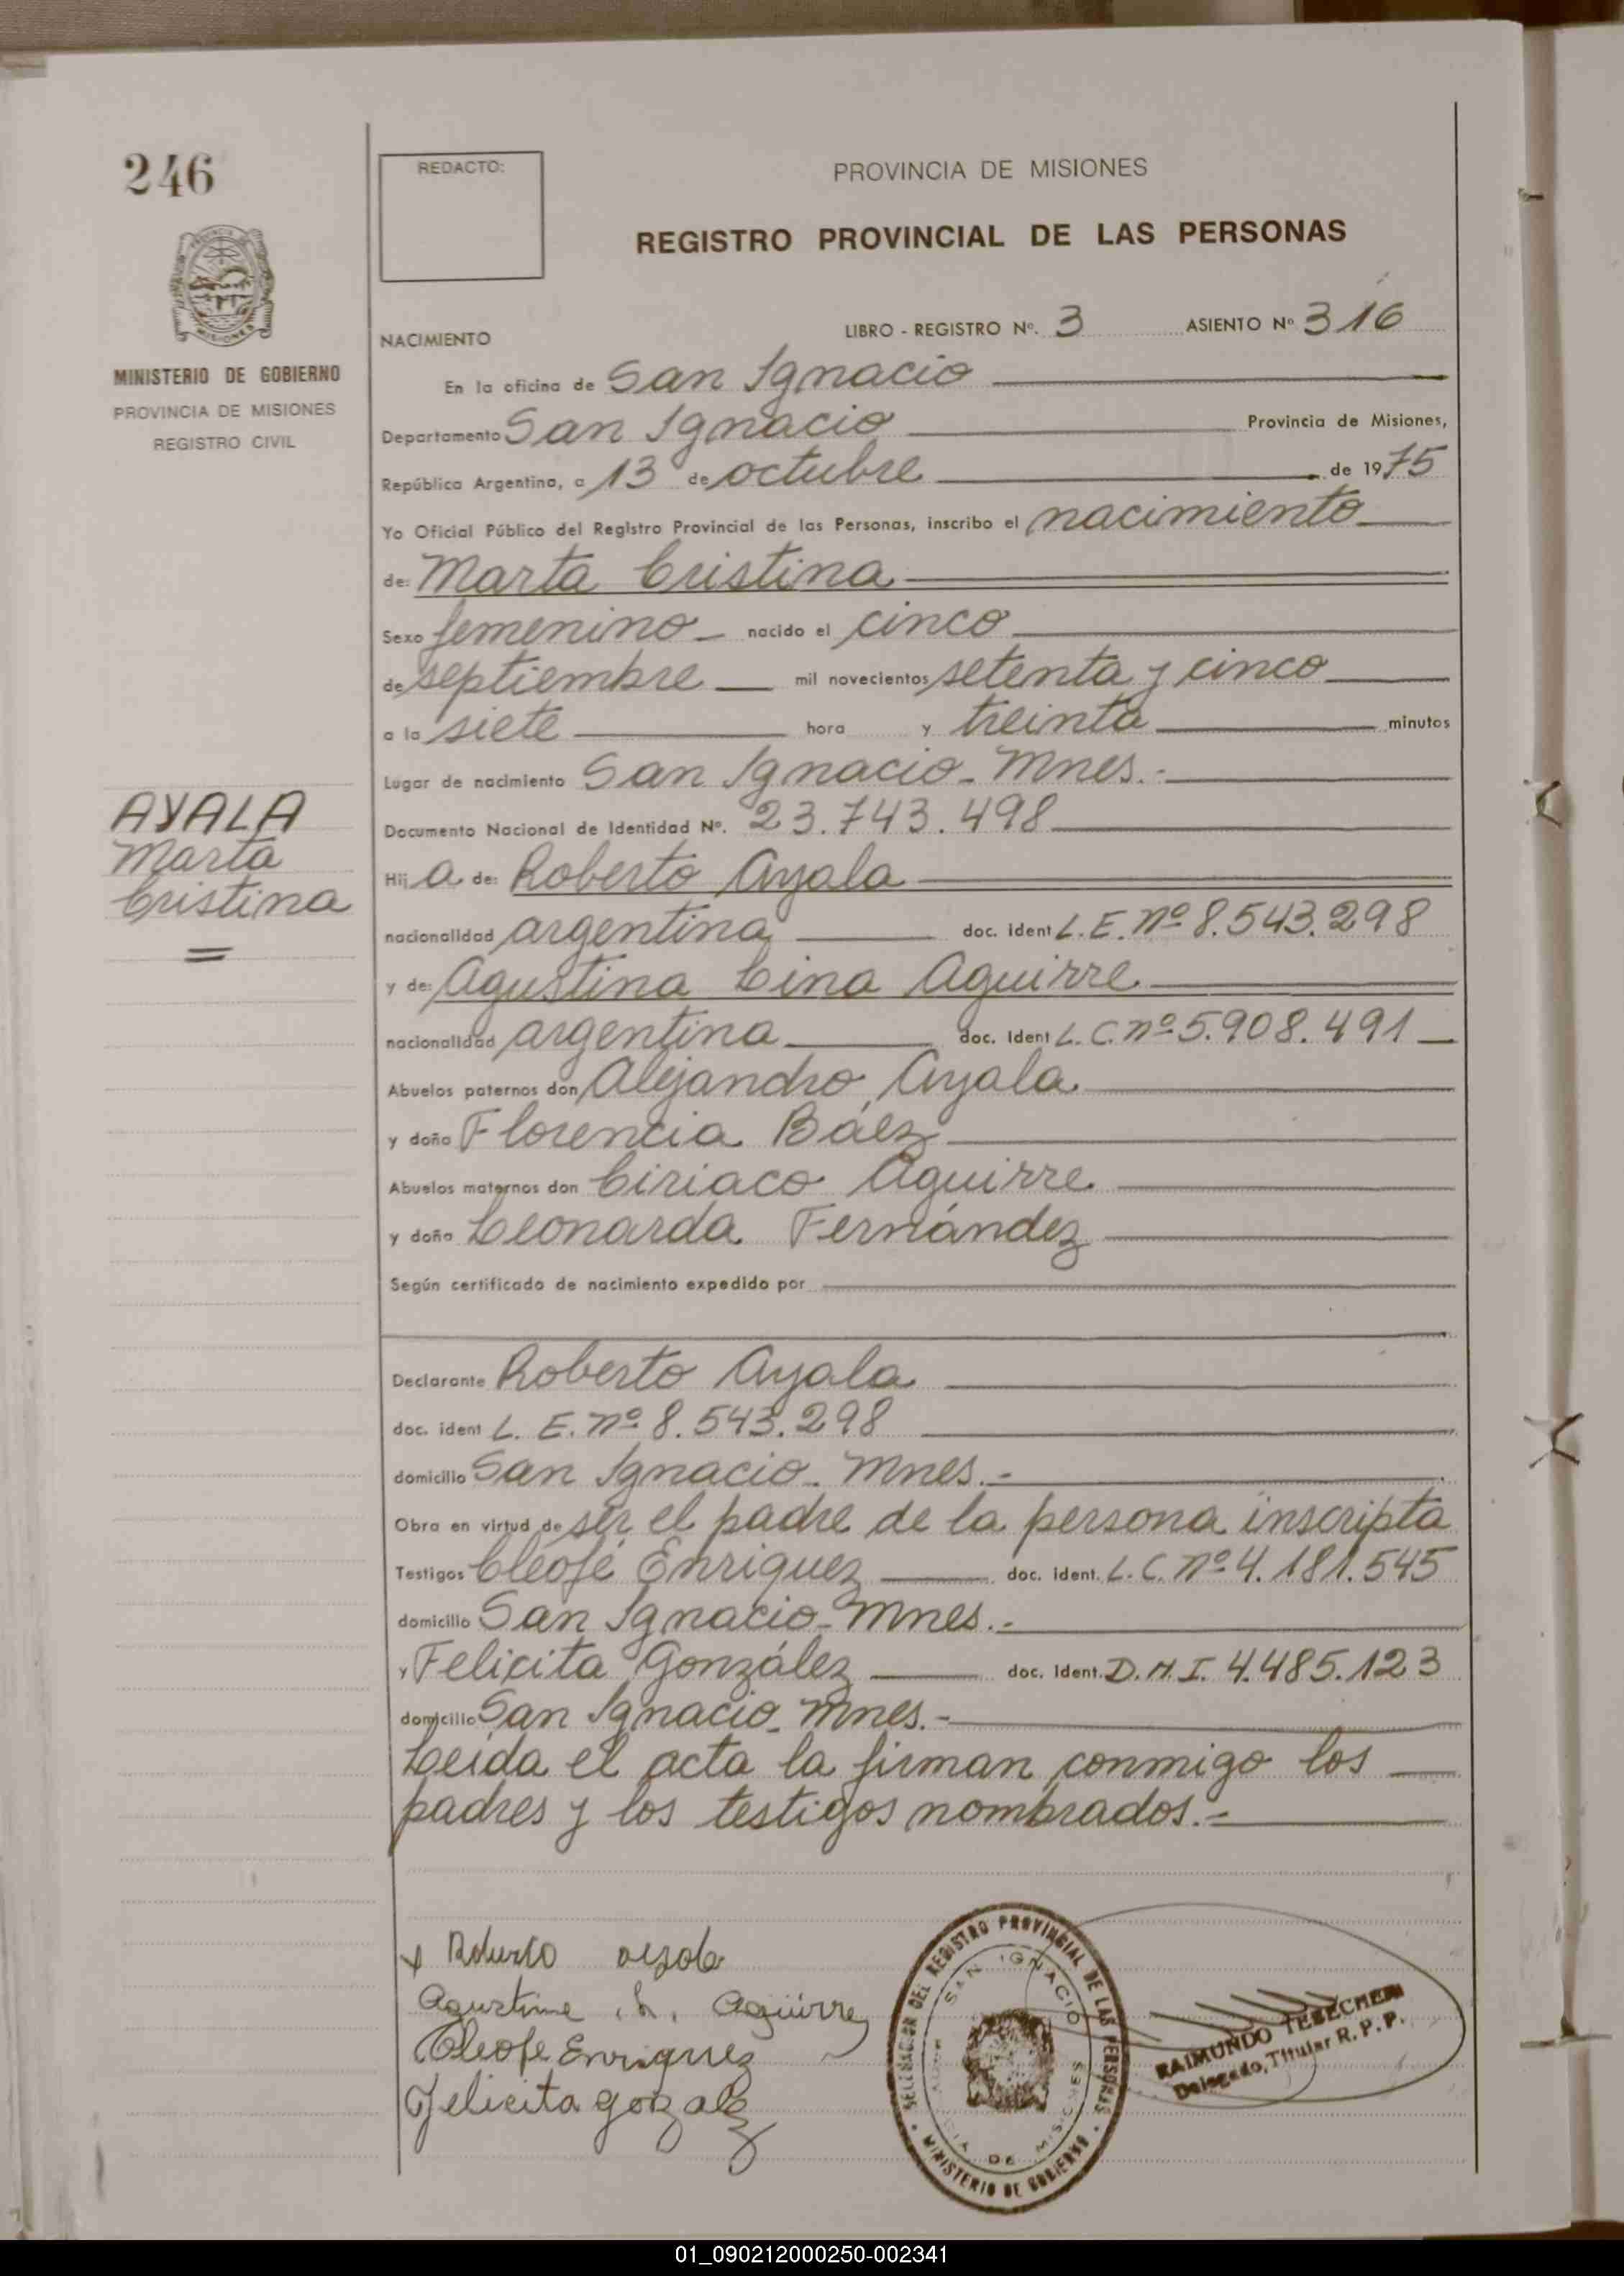 246
REDACTO:
PROVINCIA DE MISIONES
REGISTRO PROVINCIAL DE LAS PERSONAS
MINISTERIO DE GOBIERNO
PROVINCIA DE MISIONES
REGISTRO CIVIL
NACIMIENTO
LIBRO - REGISTRO Nº. 3 ASIENTO Nº 316
En la oficina de San Ignacio
Departamento San Ignacio Provincia de Misiones,
República Argentina, a 13 de octubre de 1975
Yo Oficial Público del Registro Provincial de las Personas, inscribo el nacimiento
de: Marta Cristina
Sexo femenino nacido el cinco
de septiembre mil novecientos setenta y cinco
a la siete hora y treinta minutos
Lugar de nacimiento San Ignacio - Mnes.-
Documento Nacional de Identidad Nº. 23.743.498
AYALA
Marta
Cristina
Hija de: Roberto Ayala
nacionalidad argentina doc. ident L.E. nº 8.543.298
y de: Agustina Lina Aguirre
nacionalidad argentina doc. ident L.C. nº 5.908.491
Abuelos paternos don Alejandro Ayala
y doña Florencia Báez
Abuelos maternos don Ciriaco Aguirre
y doña Leonarda Fernández
Según certificado de nacimiento expedido por
Declarante Roberto Ayala
doc. ident L. E. nº 8.543.298
domicilio San Ignacio - Mnes.-
Obra en virtud de ser el padre de la persona inscripta
Testigos Cleofé Enriquez doc. ident. L.C. nº 4.181.545
domicilio San Ignacio - Mnes.-
y Felicita González doc. ident. D.N.I. 4.485.123
domicilio San Ignacio - Mnes.-
Leída el acta la firman conmigo los
padres y los testigos nombrados.-
x Roberto ayala
Agustina L. Aguirre
Cleofe Enriquez
Felicita gonzalez
DELEGACION DEL REGISTRO PROVINCIAL DE LAS PERSONAS
SAN IGNACIO
DE MISIONES
MINISTERIO DE GOBIERNO
RAIMUNDO TEBECHERI
Delegado, Titular R. P. P.
01_090212000250-002341